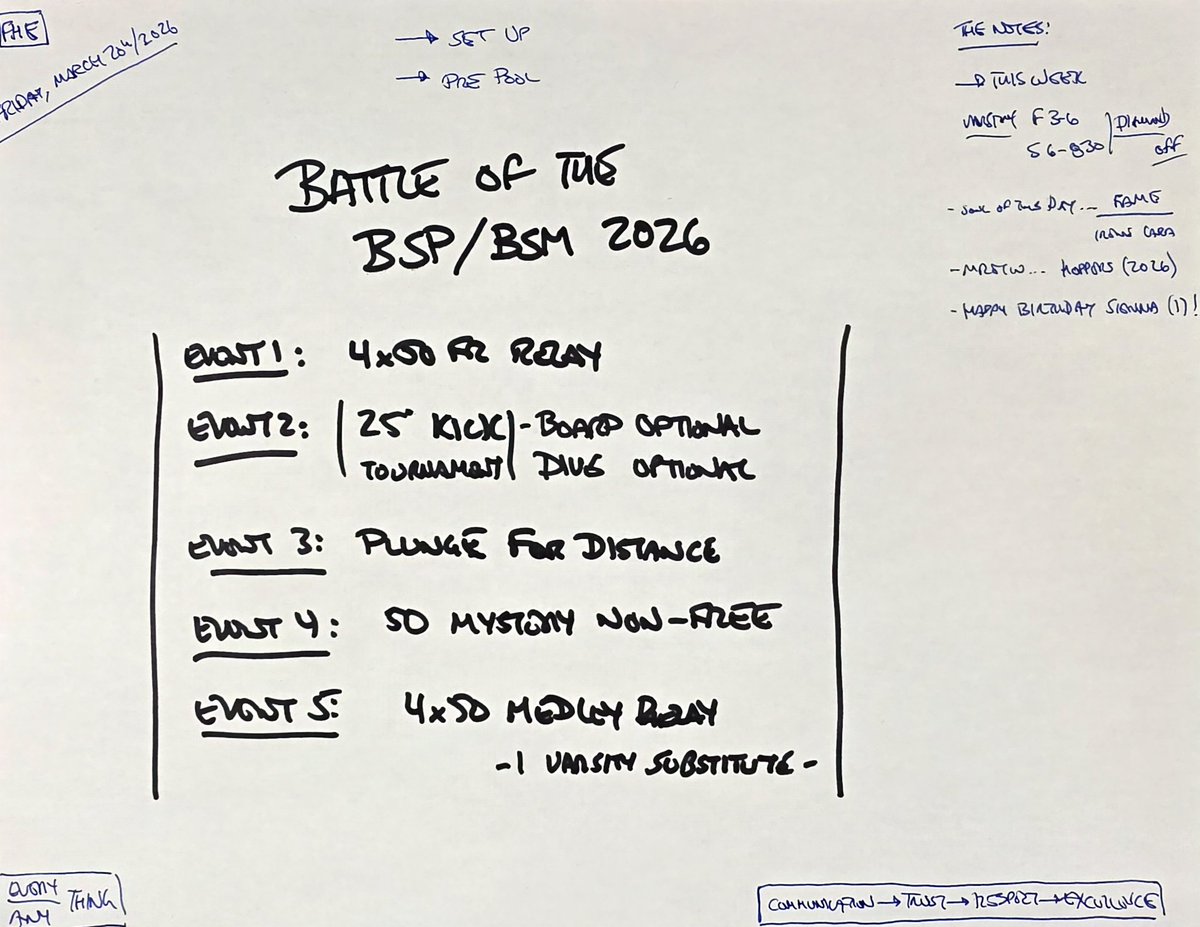 FHE
FRIDAY, MARCH 20th/2026
→ SET UP
→ PRE POOL
BATTLE OF THE
BSP/BSM 2026
EVENT 1: 4x50 FR RELAY
EVENT 2: 25 KICK - BOARD OPTIONAL
TOURNAMENT DIVE OPTIONAL
EVENT 3: PLUNGE FOR DISTANCE
EVENT 4: 50 MYSTERY NON-FREE
EVENT 5: 4x50 MEDLEY RELAY
- 1 VARSITY SUBSTITUTE -
THE NOTES:
→ THIS WEEK
VARSITY F 3-6 DIAMOND
S 6-830 OFF
- SONG OF THE DAY... FAME
IRENE CARA
- MROTW... HOPPERS (2026)
- HAPPY BIRTHDAY SIENNA (1)!
EVERY THING
ANY
COMMUNICATION → TRUST → RESPECT → EXCELLENCE